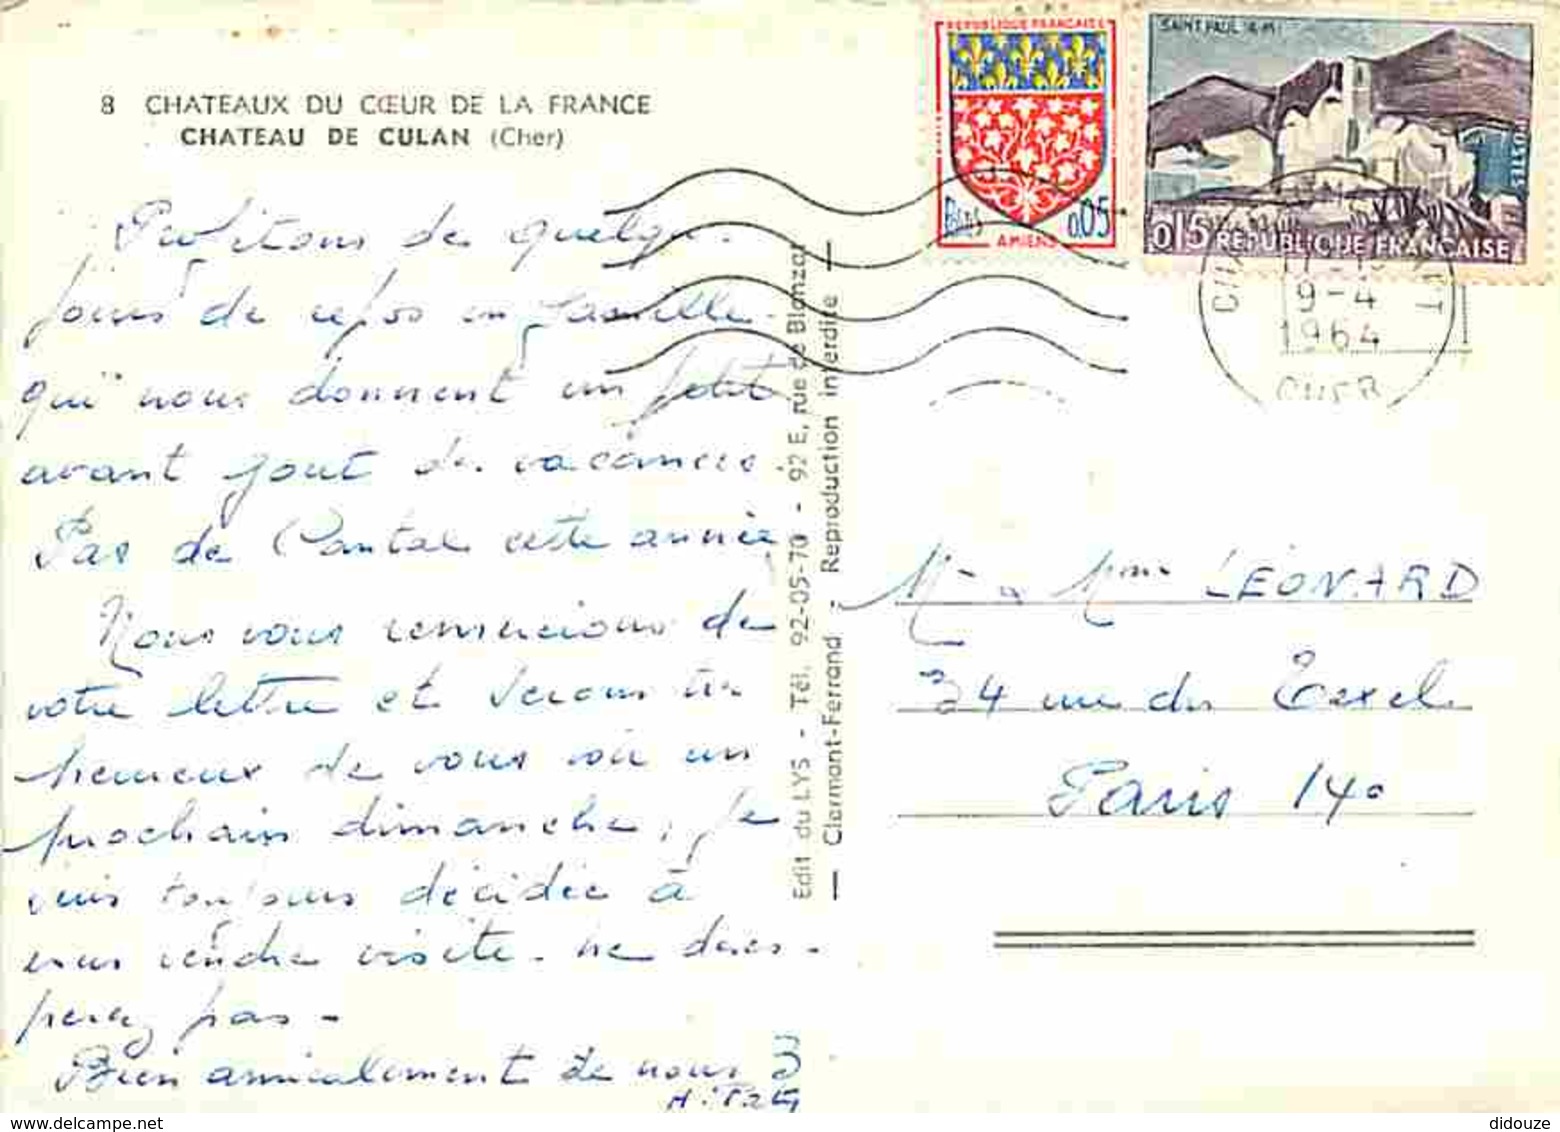 8 CHATEAUX DU CŒUR DE LA FRANCE
CHATEAU DE CULAN (Cher)
Profitons de quelqu.
jours de repos en famille.
qui nous donnent un petit
avant gout des vacances.
Pas de Cantal cette année
Nous vous remercions de
votre lettre et serons tr
heureux de vous voir un
prochain dimanche, je
suis toujours décidée à
vous rendre visite. ne deses-
perez pas -
Bien amicalement de nous 3
Edit du LYS - Tél. 92-05-70 - 92 E, rue de Blanzat
— Clermont-Ferrand - Reproduction interdite —
REPUBLIQUE FRANÇAISE
POSTES 0,05
AMIENS
SAINT PAUL
POSTES
0,15 REPUBLIQUE FRANÇAISE
9-4
1964
CHER
Mr & Mme LÉONARD
34 rue du Texel
Paris 14e
didouze